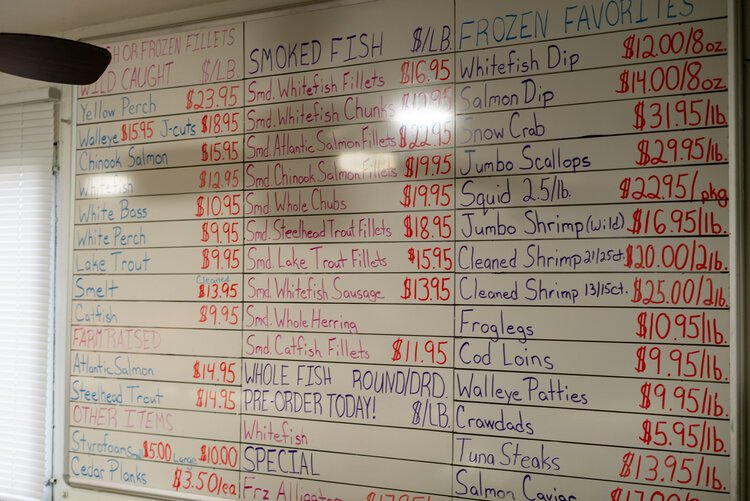 SH OR FROZEN FILLETS
WILD CAUGHT $/LB.
Yellow Perch $23.95
Walleye $15.95 J-cuts $18.95
Chinook Salmon $15.95
Whitefish $12.95
White Bass $10.95
White Perch $9.95
Lake Trout $9.95
Smelt Cleaned $13.95
Catfish $9.95
FARM RAISED
Atlantic Salmon $14.95
Steelhead Trout $14.95
OTHER ITEMS
Styrofoam $5.00 Large $10.00
Cedar Planks $3.50/ea
SMOKED FISH $/LB.
Smd. Whitefish Fillets $16.95
Smd. Whitefish Chunks
Smd. Atlantic Salmon Fillets $22.95
Smd. Chinook Salmon Fillets $19.95
Smd. Whole Chubs $19.95
Smd. Steelhead Trout Fillets $18.95
Smd. Lake Trout Fillets $15.95
Smd. Whitefish Sausage $13.95
Smd. Whole Herring
Smd. Catfish Fillets $11.95
WHOLE FISH ROUND/DRD.
PRE-ORDER TODAY! $/LB.
Whitefish
SPECIAL
Frz Alligator
FROZEN FAVORITES
Whitefish Dip $12.00/8oz.
Salmon Dip $14.00/8oz.
Snow Crab $31.95/lb.
Jumbo Scallops $29.95/lb.
Squid 2.5/lb. $22.95/pkg
Jumbo Shrimp (wild) $16.95/lb.
Cleaned Shrimp 21/25ct. $20.00/2lb.
Cleaned Shrimp 13/15ct. $25.00/2lb.
Froglegs $10.95/lb.
Cod Loins $9.95/lb.
Walleye Patties $9.95/lb.
Crawdads $5.95/lb.
Tuna Steaks $13.95/lb.
Salmon Caviar